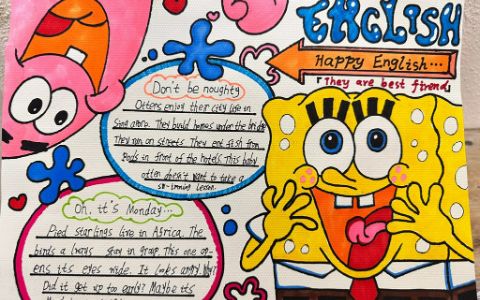 ENGLISH
Happy English...
They are best firend
Don't be noughty
Otters enjoy their city life in
They build homes under the bridge
They run on streets. They eat fish from
pools in front of the hotels. This baby
otter doesn't want to take a
swimming lesson.
Oh, it's Monday...
Pied starlings live in Africa. The
birds always stay in group. This one op-
ens its eyes wide. It looks angry. Why?
Did it get up too early? Maybe its